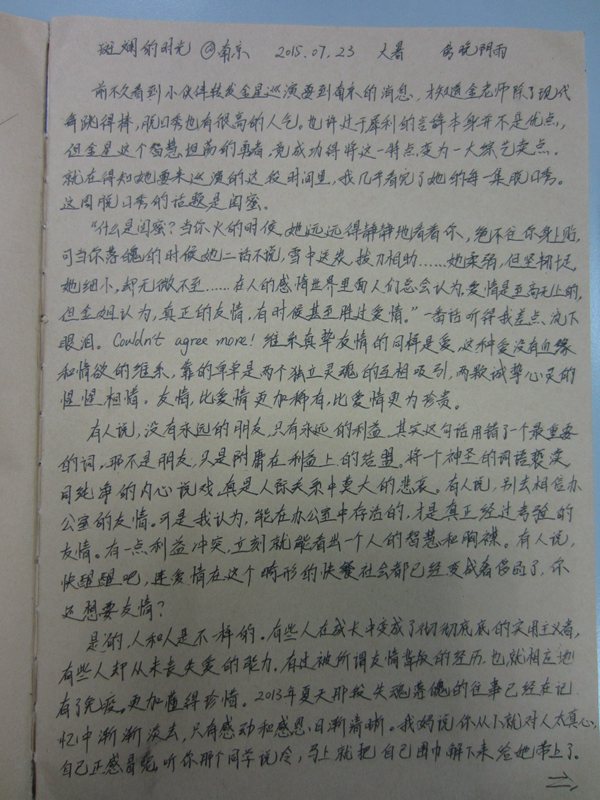 斑斓的时光 @南京 2015.07.23 大暑 傍晚阴雨
前不久看到小伙伴转发金星巡演要到南京的消息,才知道金老师除了现代
舞跳得棒,脱口秀也有很高的人气。也许过于犀利的言辞本身并不是优点,
但金星这个智慧、坦荡的勇者,竟成功得将这一特点变为一大综艺卖点。
就在得知她要来巡演的这段时间里,我几乎看完了她的每一集脱口秀。
这周脱口秀的话题是闺蜜。
“什么是闺蜜?当你火的时候,她远远得静静地看着你,绝不往你身上贴,
可当你落魄的时候她二话不说,雪中送炭,拔刀相助……她柔弱,但坚韧十足,
她细小,却无微不至……在人的感情世界里面人们总会认为,爱情是至高无上的,
但金姐认为,真正的友情,有时候甚至胜过爱情。”一番话听得我差点流下
眼泪。Couldn't agree more! 维系真挚友情的同样是爱,这种爱没有血缘
和情欲的维系,靠的单单是两个独立灵魂的互相吸引,两颗诚挚心灵的
惺惺相惜。友情,比爱情更加稀有,比爱情更为珍贵。
有人说,没有永远的朋友,只有永远的利益。其实这句话用错了一个最重要
的词,那不是朋友,只是附庸在利益上的结盟。将一个神圣的词语亵渎,
同纯净的内心说戏,真是人际关系中莫大的悲哀。有人说,别去相信办
公室的友情。可是我认为,能在办公室中存活的,才是真正经过考验的
友情。有一点利益冲突,立刻就能看出一个人的智慧和胸襟。有人说,
快醒醒吧,连爱情在这个畸形的快餐社会都已经变成奢侈品了,你
还想要友情?
是的,人和人是不一样的。有些人在成长中变成了彻彻底底的实用主义者,
有些人却从未丧失爱的能力。有过被所谓友情背叛的经历,也就相应地
有了免疫。更加懂得珍惜。2013年夏天那段失魂落魄的往事已经在记
忆中渐渐淡去,只有感动和感恩,日渐清晰。我妈说你从小就对人太真心,
自己正感冒呢,听你那个同学说冷,马上就把自己围巾解下来给她带上了。